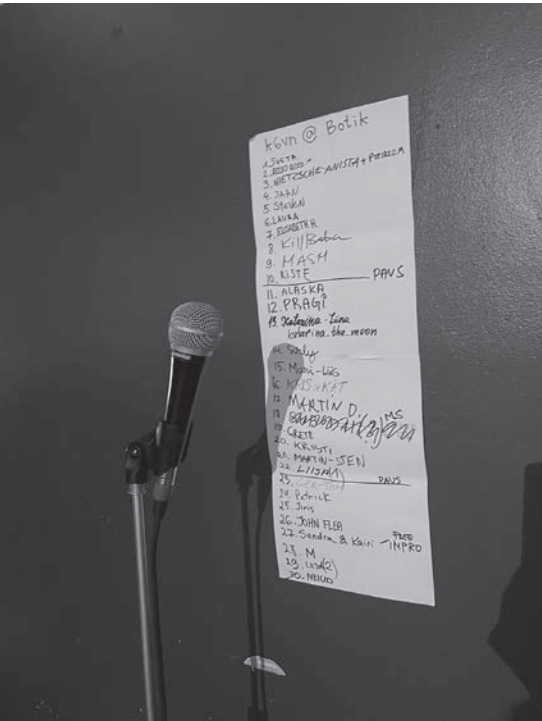 kõvn @ Botik
1. SVETA
2.
3. NIETZSCHE-ANISTA +
4. JAAN
5. Steven
6. LAURA
7. ELISABETH H.
8. Kill/Baba
9. MASM
10. RISTE PAUS
11. ALASKA
12. PRAGI
13. Katarina-Liina
katarina.the.moon
14.
15. Mari-Liis
16.
17. MARTIN D.
18. MS
19. GRETE
20. KRISTI
21. MARTIN-STEN
22. LIISA(1)
23. PAUS
24. Patrick
25.
26. JOHN FLEA
27. Sandra & Kairi - FREE IMPRO
28. M
29. LIISA(2)
30.